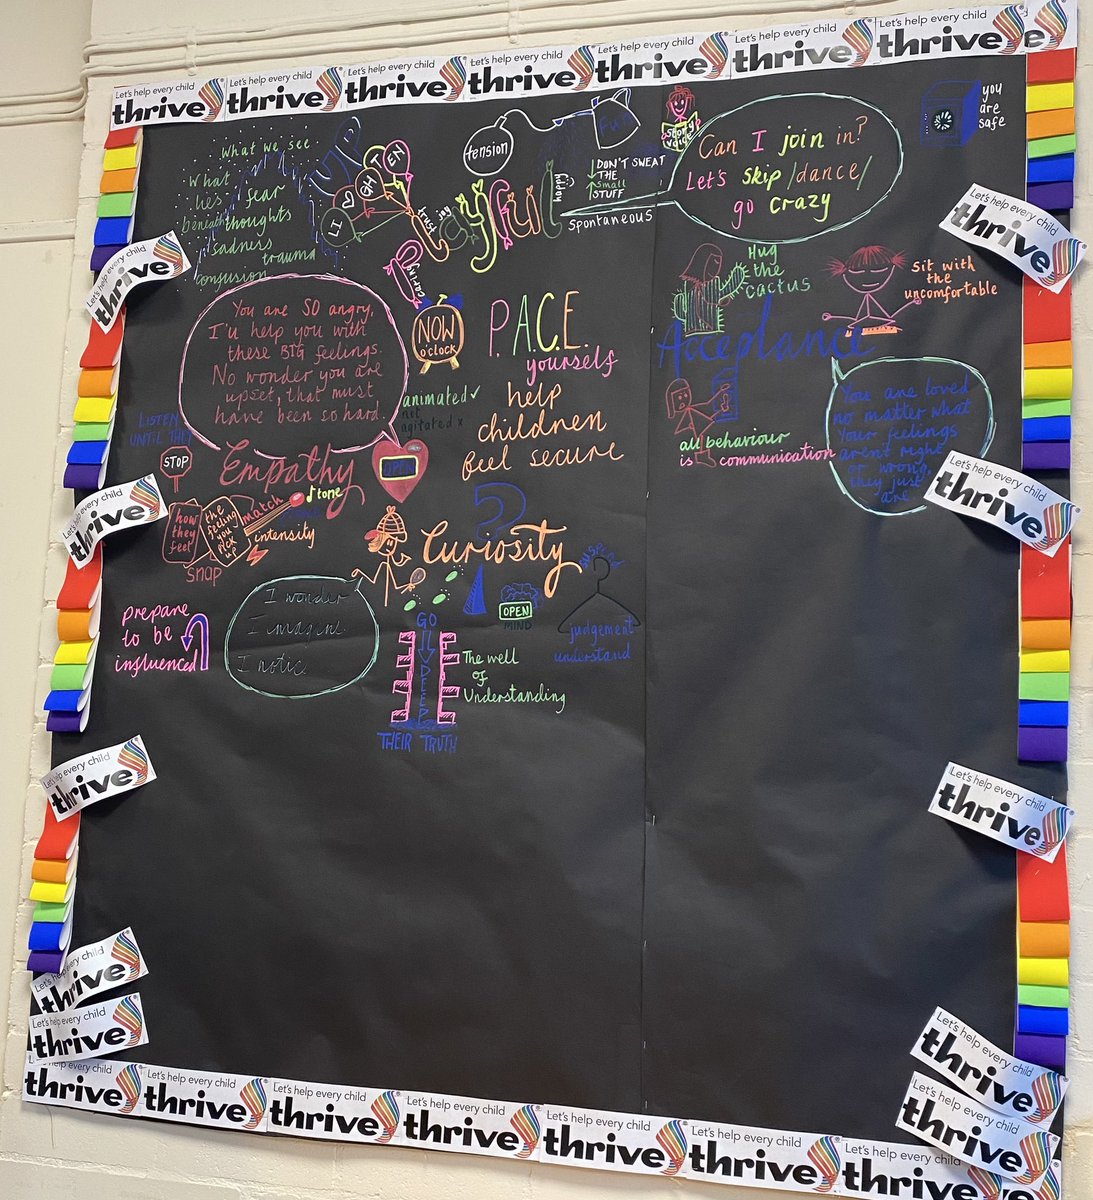 Let's help every child
thrive
Let's help every child
thrive
Let's help every child
thrive
Let's help every child
thrive
Let's help every child
thrive
Let's help every child
thrive
Let's help every child
thrive
What we see
What
lies
beneath
fear
thoughts
sadness
trauma
confusion
UP
LI
GH
T
EN
tension
Fun
Playful
trust
joy
caring
happy
DON'T SWEAT
THE
small
STUFF
spontaneous
story
voice
Can I join in?
Let's skip/dance/
go crazy
you
are
safe
You are SO angry,
I'll help you with
these BIG feelings.
No wonder you are
upset, that must
have been so hard.
NOW
O'CLOCK
animated ✓
not
agitated x
P.A.C.E.
yourself
help
children
feel secure
Hug
the
cactus
Sit with
the
uncomfortable
Acceptance
all behaviour
is communication
You are loved
no matter what
Your feelings
aren't right
or wrong,
they just
are
LISTEN
UNTIL THEY
STOP
Empathy
OPEN
how
they
feel
the
feeling
you
pick
up
SNAP
match
tone
intensity
?
Curiosity
OPEN
MIND
SUSPEND
judgement
understand
prepare
to be
influenced
I wonder
I imagine
I notice
GO
DEEP
The well
of
Understanding
THEIR TRUTH
Let's help every child
thrive
Let's help every child
thrive
Let's help every child
thrive
Let's help every child
thrive
Let's help every child
thrive
Let's help every child
thrive
Let's help every child
thrive
Let's help every child
thrive
Let's help every child
thrive
Let's help every child
thrive
Let's help every child
thrive
Let's help every child
thrive
Let's help every child
thrive
Let's help every child
thrive
Let's help every child
thrive
Let's help every child
thrive
Let's help every child
thrive